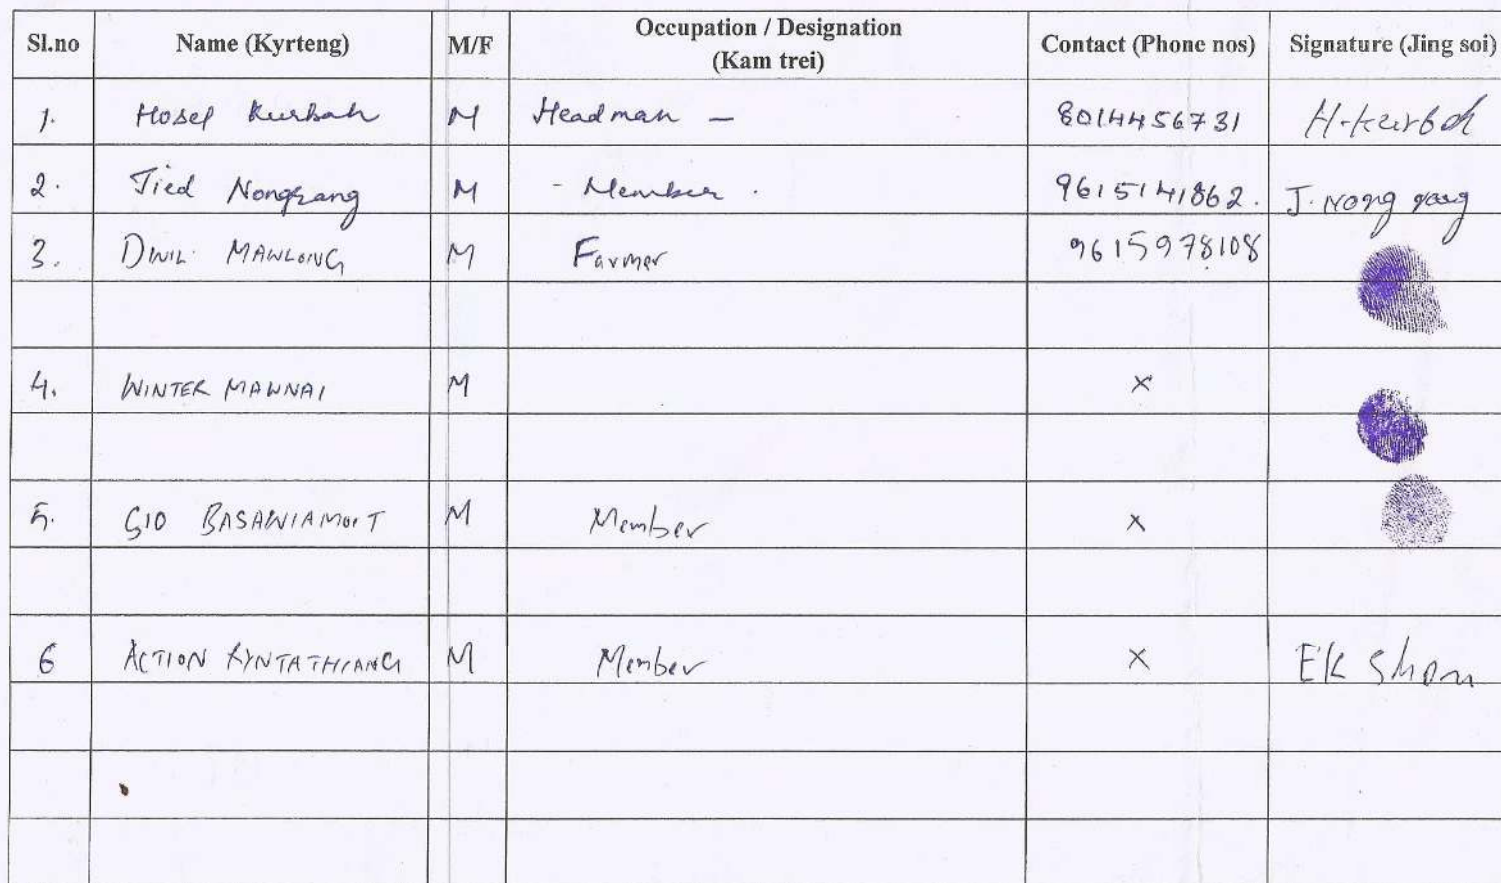 Sl.no Name (Kyrteng) M/F Occupation / Designation (Kam trei) Contact (Phone nos) Signature (Jing soi)
1. Hosep Kurbah M Headman – 8014456731 H-kurbah
2. Jied Nongrang M - Member . 9615141862. J. Nongrang
3. DWIL MAWLONG M Farmer 9615978108
4. WINTER MAWNAI M x
5. GIO M Member x
6 ACTION KYNTATHIANG M Member x